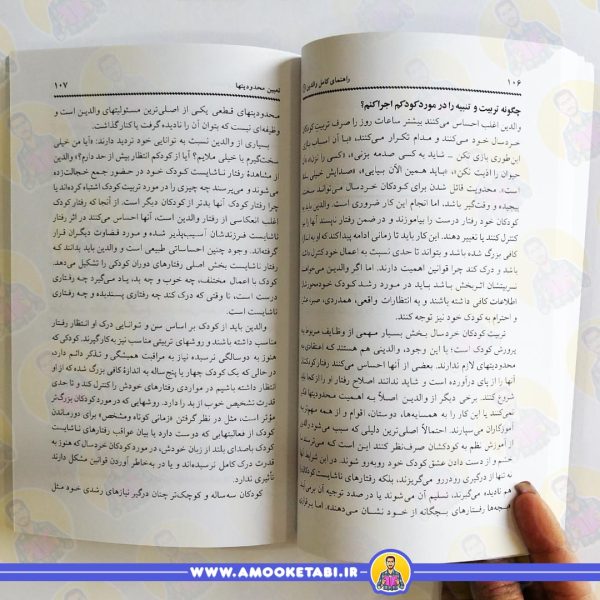 ۱۰۶
راهنمای کامل والدین
چگونه تربیت و تنبیه را در مورد کودکم اجرا کنم؟
والدین اغلب احساس می‌کنند بیشتر ساعات روز را صرف تربیت کودکان
خردسال خود می‌کنند و مدام تکرار می‌کنند، «با آن اسباب بازی
این‌طوری بازی نکن ـ شاید به کسی صدمه بزنی»، «کسی را نزن»، «آن
حیوان را اذیت نکن»، «باید همین الآن بیایی»، «صدایش خیلی
است». محدودیت قائل شدن برای کودکان خردسال می‌تواند سخت،
پیچیده و وقت‌گیر باشد. اما انجام این کار ضروری است. والدین باید به
کودکان خود رفتار درست را بیاموزند و در ضمن رفتار ناپسند آنها را
کنترل کنند یا تغییر دهند. این کار باید تا زمانی ادامه پیدا کند که او به اندازه
کافی بزرگ شده باشد و بتواند تا حدی نسبت به اعمال خود کنترل داشته
باشد و درک کند چرا قوانین اهمیت دارند. اما اگر والدین می‌خواهند
تربیتشان اثربخش باشد باید در مورد رشد کودک خود
اطلاعات کافی داشته باشند و به انتظارات واقعی، همدردی، صبر، عشق و
احترام به کودک خود نیز توجه کنند.
تربیت کودکان خردسال بخش بسیار مهمی از وظایف مربوط به
پرورش کودک است؛ با این وجود، والدینی هم هستند که اعتقادی به
محدودیتهای لازم ندارند. بعضی از آنها احساس می‌کنند رفتار کودکشان
آنها را از پای درآورده است و شاید ندانند اصلاح رفتار او را از کجا باید
شروع کنند. برخی دیگر از والدین اصلاً به اهمیت محدودیتها فکر
نمی‌کنند یا این کار را به همسایه‌ها، دوستان، اقوام و از همه مهم‌تر به
آموزگاران می‌سپارند. احتمالاً اصلی‌ترین دلیلی که سبب می‌شود والدین
از آموزش نظم به کودکشان صرف‌نظر کنند این است که می‌ترسند با
خشم و از دست دادن عشق کودک خود روبه‌رو شوند. در این شرایط آنها
نه تنها از درگیری رودررو می‌گریزند، بلکه رفتارهای ناشایست کودکان را
هم نادیده می‌گیرند، تسلیم آن می‌شوند یا در صدد توجیه آن برمی‌آیند
«بچه‌ها رفتارهای بچگانه از خود نشان می‌دهند». اما برقراری
تعیین محدودیتها
۱۰۷
محدودیتهای قطعی یکی از اصلی‌ترین مسئولیتهای والدین است و
وظیفه‌ای نیست که بتوان آن را نادیده گرفت یا کنار گذاشت.
بسیاری از والدین نسبت به توانایی خود تردید دارند: «آیا من خیلی
سخت‌گیرم یا خیلی ملایم؟ آیا از کودکم انتظار بیش از حد دارم؟» والدین
از مشاهدهٔ رفتار ناشایست کودک خود در حضور جمع خجالت‌زده
می‌شوند و می‌پرسند چه چیزی را در مورد تربیت کودک اشتباه کرده‌اند یا
چرا رفتار کودک آنها بدتر از کودکان دیگر است. از آنجا که رفتار کودک
اغلب انعکاسی از رفتار والدین است، آنها احساس می‌کنند در اثر رفتار
ناشایست فرزندشان آسیب‌پذیر شده و مورد قضاوت دیگران قرار
گرفته‌اند. وجود چنین احساساتی طبیعی است و والدین باید بدانند که
رفتار ناشایست بخش اصلی رفتارهای دوران کودکی را تشکیل می‌دهد.
کودک با اعمال مختلف، چه خوب و چه بد، یاد می‌گیرد چه رفتاری
درست است، تا وقتی که درک کند چه رفتاری پسندیده و چه رفتاری
ناشایست است.
والدین باید از کودک بر اساس سن و توانایی درک او انتظار رفتار
مناسب داشته باشند و روشهای تربیتی مناسب نیز به کار گیرند. کودکی که
هنوز به دوسالگی نرسیده نیاز به مراقبت همیشگی و تذکر دائم دارد،
درحالی که یک کودک چهار یا پنج‌ساله به اندازهٔ کافی بزرگ شده که از او
انتظار داشته باشیم در مواردی رفتارهای خودش را کنترل کند و تا حدی
قدرت تشخیص خوب از بد را دارد. روشهایی که در مورد کودکان بزرگ‌تر
مؤثر است، مثل در نظر گرفتن «زمانی کوتاه و مشخص» برای دور ماندن
کودک از فعالیتهایی که دوست دارد یا بیان عواقب رفتارهای نامناسب
کودک با صدای بلند از زبان خودش، در مورد کودکان خردسال که هنوز به
قدرت درک کامل نرسیده‌اند و یا در به‌خاطر آوردن قوانین مشکل دارند
تأثیری ندارد.
کودکان سه‌ساله و کوچک‌تر چنان درگیر نیازهای رشدی خود مثل
WWW.AMOOKETABI.IR